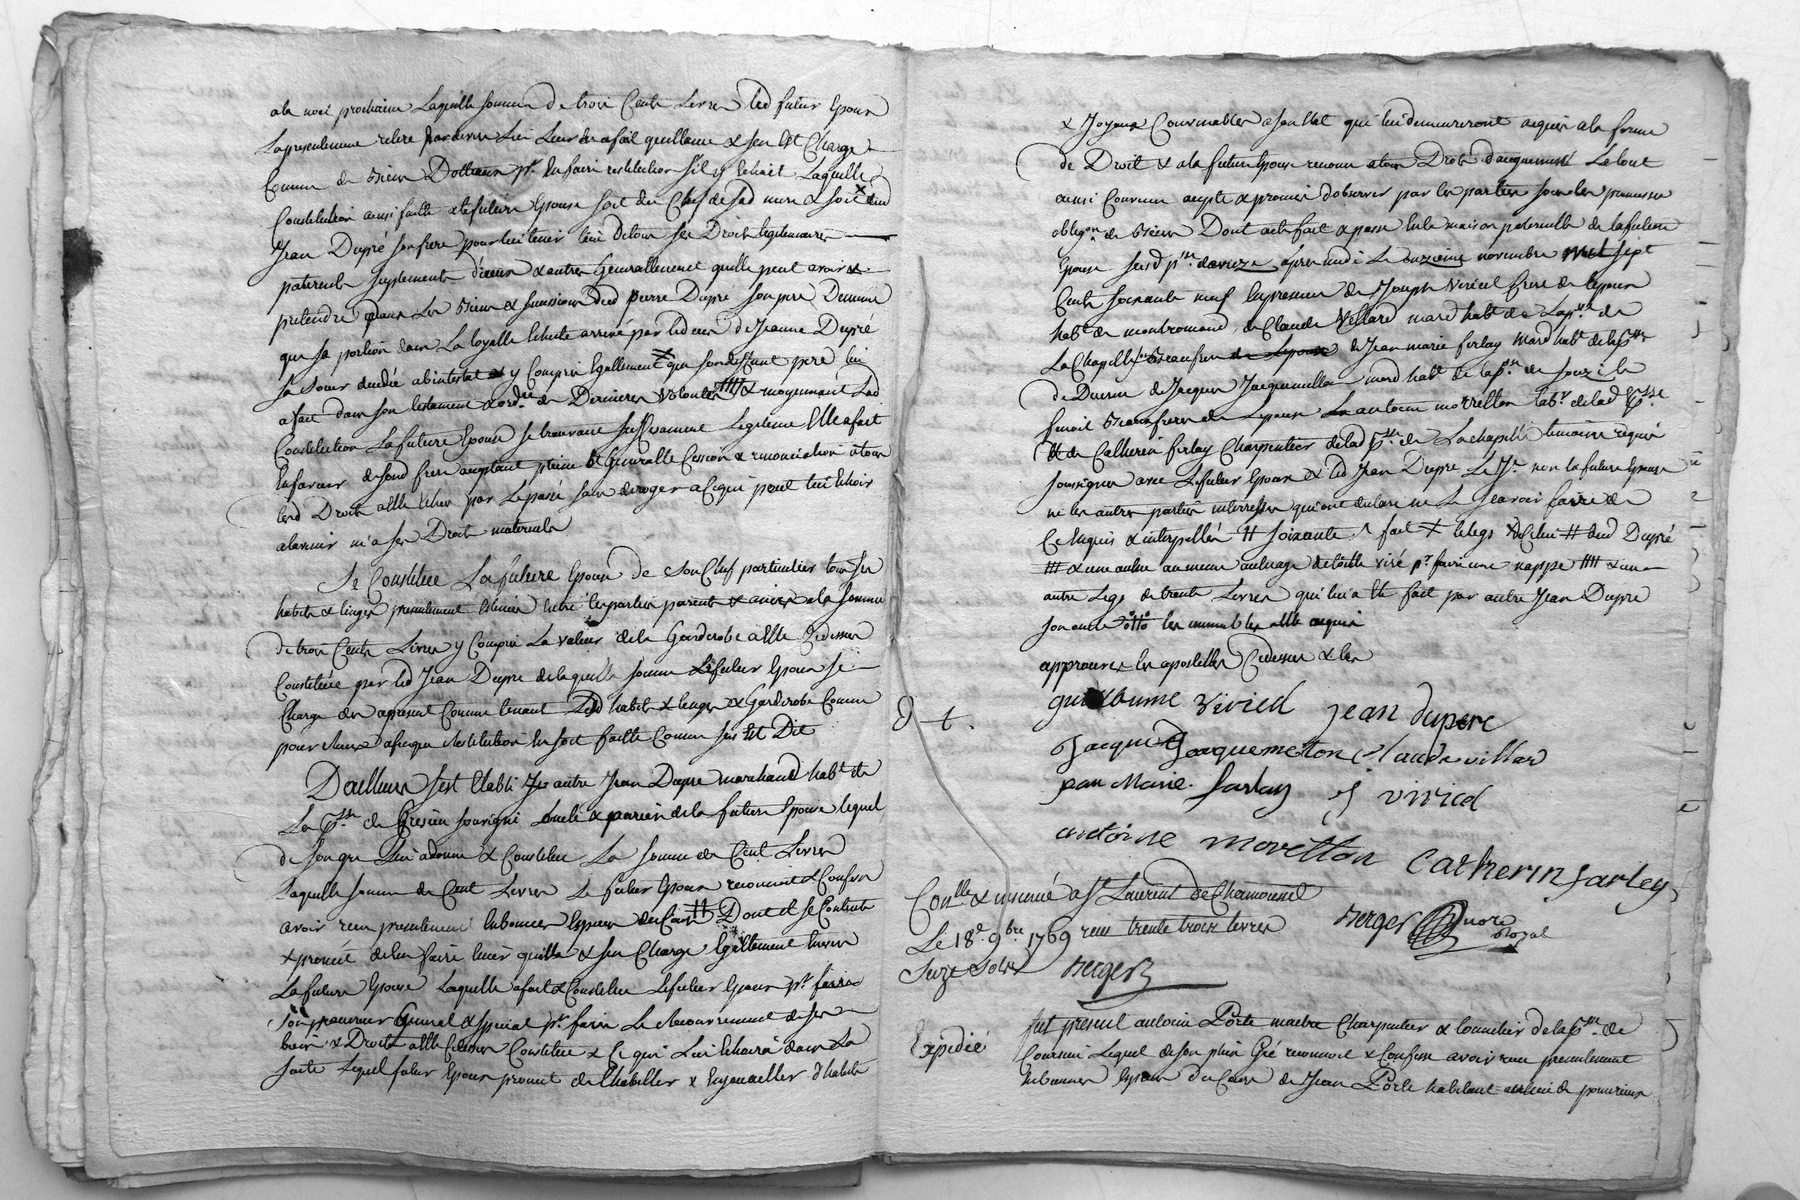 ala noel prochaine Laquelle somme de trois Cents Livres led futur Epoux
comme de Biens Dottaux pr. En faire restitution sil y Echait Laquelle
Constitution ainsi faitte alafuture Epouse soit du Chef de sad mere & soit dud
Jean Dupré son frere pour lui tenir lieu de tous ses Droits legitimaires
paternels suplement d'iceux & autres Generallement quelle peut avoir &
pretendre dans Les Biens & successions dud pierre Dupre son pere Demême
que sa portion dans La loyalle Echute arrivé par ledeces de Jeanne Dupré
sa soeur decedée abintestat y Compris Egallement que son deffunt pere lui
a fait dans son testament & ordce de Dernieres Volontés & moyennant Lad
Constitution La future Epouse se trouvant suffisamment Legitimée Elle a fait
Enfaveur desond frere acceptant pleine & Generalle Cession & renonciation atous
lesd Droits a Elle Echus par Lepassé sans deroger aCequi peut lui Echoir
alavenir ni a ses Droits maternels
Se Constitue La future Epouse de son Chef particulier tous ses
habits & linges presentement Estimés Entre les parties parents & amis ala somme
de trois Cents Livres y Compris La valeur dela Garderobe a Elle Cidessus
Constituée par led Jean Dupre delaquelle somme Lefutur Epoux se
Charge des apresent Comme tenant Lesd habits & linges & Garderobe Comme
pour Reçus afinque Restitution En soit faitte Comme sus Est Dit
Dailleurs sest Etabli autre Jean Dupre marchand habt de
La psse de Gresieu soussigné oncle & parrain dela future Epouse lequel
de son gré Lui adonné & Constitue La somme de Cent Livres
Laquelle somme de Cent Livres Le futur Epoux reconnoit & Confesse
avoir reçu presentement Enbonnes Especes du Cours Dont il se Contente
& promet de lui faire tenir quitte & sen Charge Egallement Envers
La future Epouse Laquelle a fait & Constitue Lefutur Epoux pr faire
son procureur General & special pr. faire Le Recouvrement de ses
biens & Droits a Elle Cidessus Constitués & Ce qui Lui Echoira dans La
suite Lequel futur Epoux promet de Lhabiller & Enjouailler d'habits
& Joyaux Convenables a son Etat qui lui demeureront acquis ala forme
de Droit & ala future Epouse renonce atous Droits dacquements Le tout
ainsi Convenu accepté & promis d'observer par les parties sous les promesses
obligon. de Biens Dont acte fait & passé En la maison paternelle de la future
Epouse susd psse daveize après midi Le onzieme novembre mil sept
Cents soixante neuf En presence de Joseph Viricel frere de lepoux
habt de montromand, de Claude Villard mard habt de Lapsse de
La Chapelle Beaufrere de Lepouse de Jean marie ferlay mard habt delapsse
de Duerne de Jacques Jacquemetton mard habt de lapsse de souzi le
Beaufrere de Lepoux antoine moretton labr. delad psse
& de Catherin ferlay Charpentier delad psse de Lachapelle temoins requis
soussignés avec Lefutur Epoux & led Jean Dupre Le Jne non la future Epouse
ne les autres parties interressées qui ont declaré ne Le sçavoir faire de
Ce Enquis & interpellés # soixante fait X Lelegs # dud Dupré
autre Legs de trente Livres qui lui a Eté fait par autre Jean Dupre
son oncle les immeubles a Elle acquis
approuvé les apostilles Cidessus & les
guillaume Viricel Jean dupere
Jacque Jacquemetton Claude villar
jean Marie farlay J viricel
antoine moretton Catherin farley
Conlle & insinué a St Laurent de Chamousset
Le 18e 9bre 1769 reçu trente trois livres
Seize Sols Berger
Berger nore Royal
Expedié
fut present antoine Porte maitre Charpentier & tonnelier dela psse de
Coursieu Lequel de son plein Gré reconnoit & Confesse avoir reçu presentement
Enbonnes Especes du Cours de Jean Porte habitant